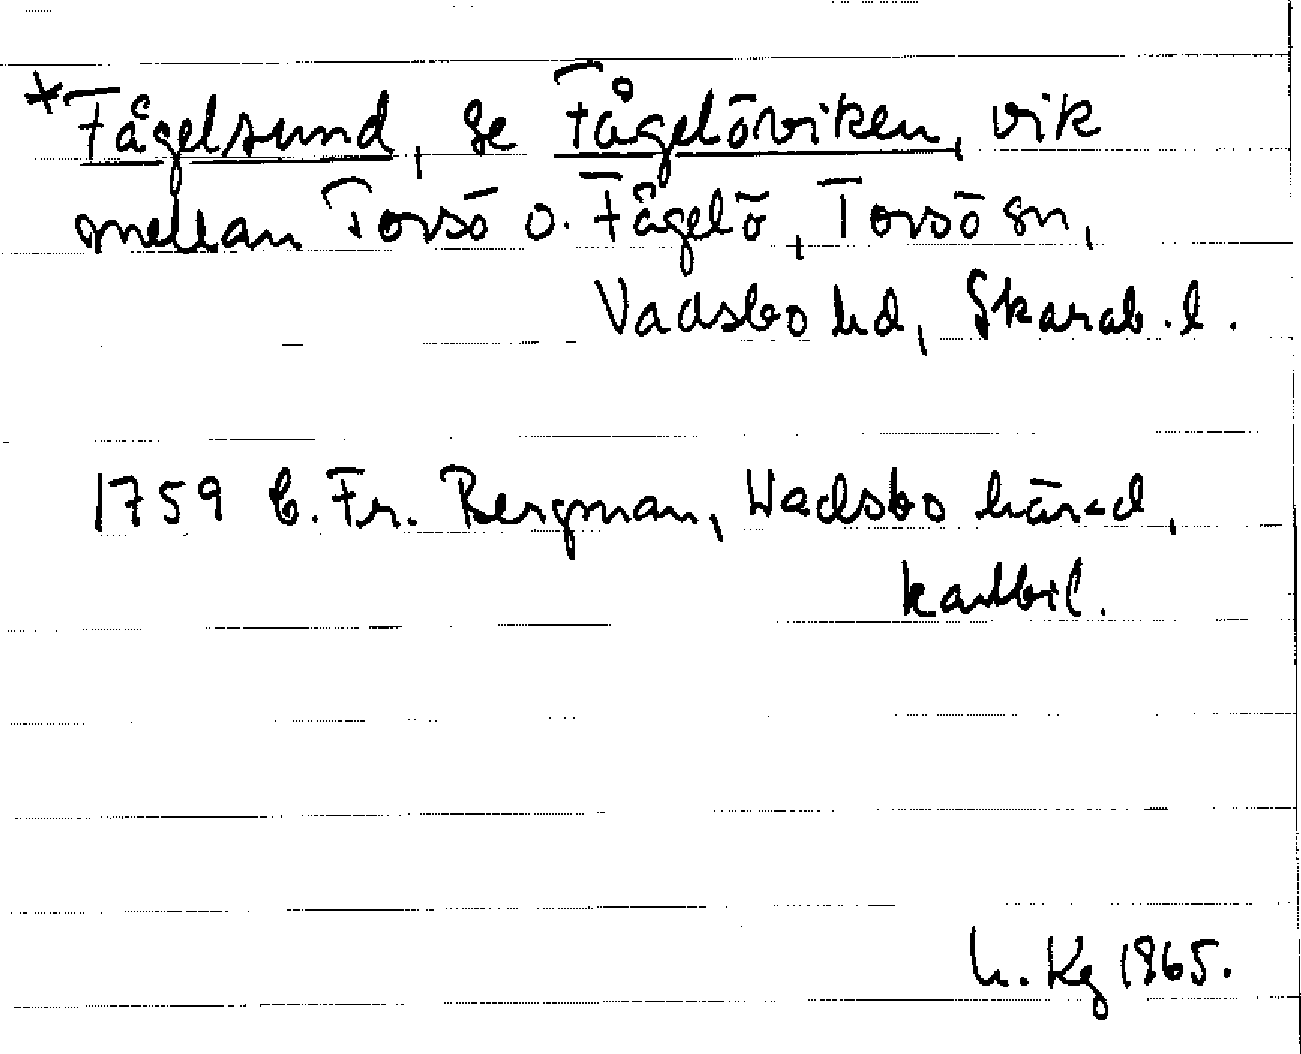 *Fågelsund, se Fågelöviken, vik
mellan Torsö o. Fågelö, Torsö sn,
Vadsbo hd, Skarab. l.
1759 C. Fr. Bergman, Wadsbo härad,
kartbil.
h. Kg 1965.